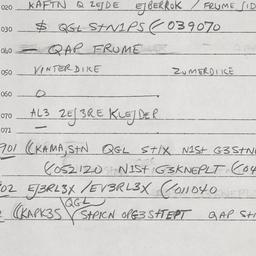 020 KAFTN Q ZEJDE EJBERROK / FRUME SID
030 $ QGL S+N1PS (/ 039070
040 — QAP FRUME
050 VINTERDIKE ZUMERDIKE
060 O
070 AL3 ZEJ3RE KLEJDER
071 —
901 ((KAMA,S+N QGL ST/X N1S+ G3S+N
(/052120 N1S+ G3KNEPLT (/04
02 EJ3RL3X /EV3RL3X (/011040
QGL
((KAPK3S S+APICN OPG3S+TEPT QAP